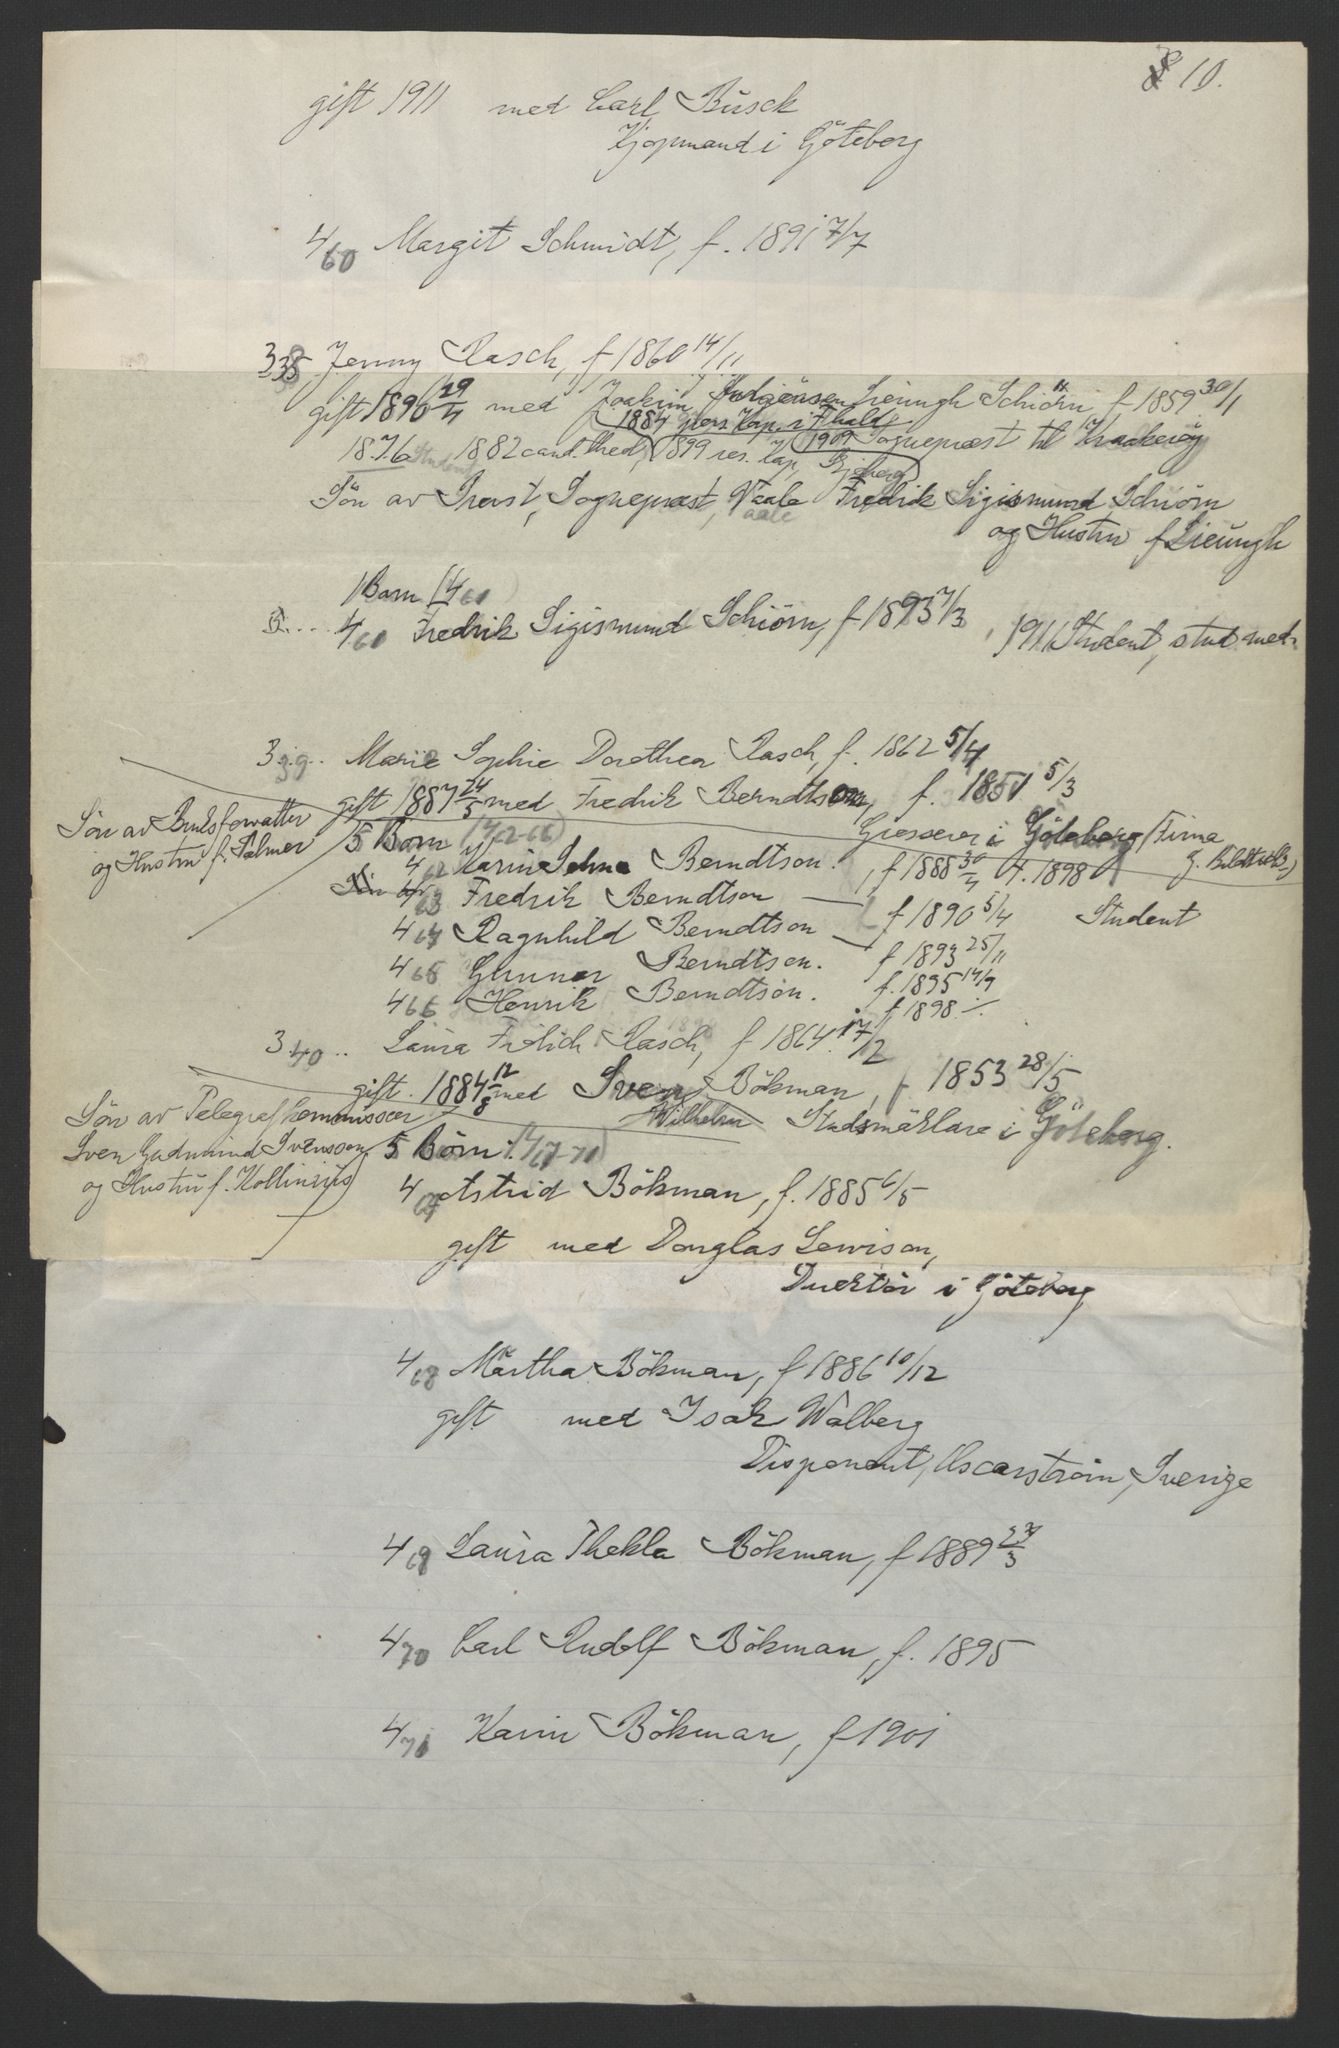 10.
gift 1911 med Carl Büsck
Kjøpmand i Göteborg
4 60 Margit Schmidt, f. 1891 7/7
3 38 Jenny Rasch, f 1860 14/11
gift 1890 29/4 med Joakim Lieungh Schiörn, f 1859 30/1
1884 pers. Kap. i Fhald
1876 Student 1882 cand. theol, 1899 res. Kap, 1909 Sognepræst til Kraakerøy
Sön av Provst, Sognepræst, Vaale Fredrik Sigismund Schiörn
og Hustru f Lieungh
1 Barn (4 61)
4 61 Fredrik Sigismund Schiörn, f 1893 7/3, 1911 Student, stud med.
3 39. Marie Sophie Dorothea Rasch, f. 1862 5/4
gift 1887 24/5 med Fredrik Berndtson, f. 1851 5/3
Sön av Bruksforvalter
og Hustru f. Palmer
Grosserer i Göteborg (Firma
5 Barn (4 62-66)
4 62 Karin Selma Berndtson, f 1888 30/4 †. 1898
4 63 Fredrik Berndtson f 1890 5/4 Student
4 64 Ragnhild Berndtson f 1893 25/11
4 65 Gunnar Berndtson. f. 1895 14/9
4 66 Henrik Berndtson. f 1898
3 40.. Laura Frölich Rasch, f 1864 17/2
gift. 1884 12/8 med Sven Bökman, f. 1853 28/5
Wilhelm Stadsmäklare i Göteborg.
Sön av Telegrafkommissær
Sven Gudmund Svensson
og Hustru f. Kollinius
5 Börn: (4 67-71)
4 67 Astrid Bökman, f. 1885 6/5
gift med Douglas Lewison,
Direktör i Göteborg
4 68 Märtha Bökman, f 1886 10/12
gift med Isak Walberg
Disponent, Oscarström, Sverige
4 69 Laura Thekla Bökman, f 1889 27/3
4 70 Carl Rudolf Bökman, f. 1895
4 71 Karin Bökman, f 1901